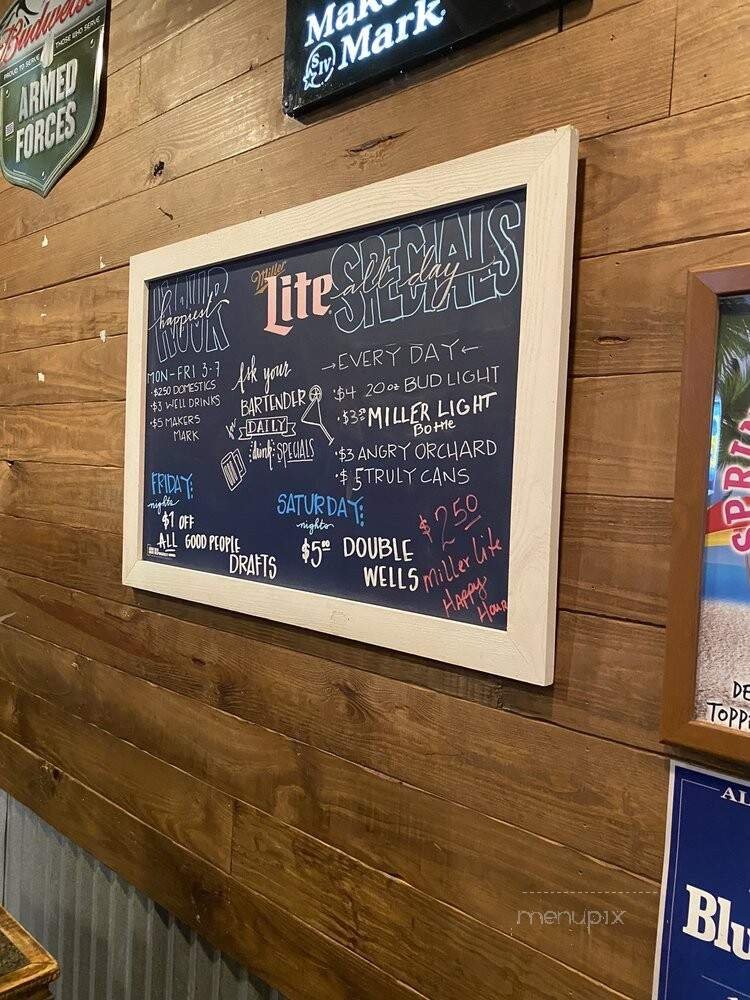 Budweiser
PROUD TO SERVE THOSE WHO SERVE
ARMED
FORCES
Make
SIV Mark
happiest
HOUR
Miller
Lite
SPECIALS
all day
MON-FRI 3-7
• $2.50 DOMESTICS
• $3 WELL DRINKS
• $5 MAKERS
MARK
Ask your
BARTENDER
DAILY
drink SPECIALS
→EVERY DAY←
• $4 20oz BUD LIGHT
• $3 MILLER LIGHT
Bottle
• $3 ANGRY ORCHARD
• $5 TRULY CANS
FRIDAY:
nights
$1 OFF
ALL GOOD PEOPLE
DRAFTS
SATURDAY:
nights
$5.00 DOUBLE
WELLS
$2.50
Miller Lite
HAPPY
Hour
SPRIN
DE
TOPP
AL
Blu
menupix